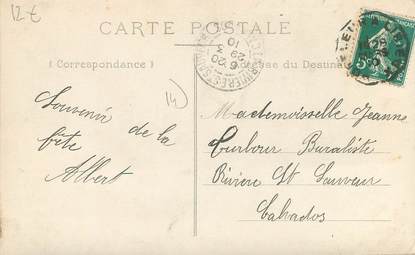 12 €
CARTE POSTALE
( Correspondance )
Adresse du Destina
14
Souvenir
de la
fête
Albert
Mademoisselle Jeanne
Turbour Buraliste
Rivière St Sauveur
Calvados